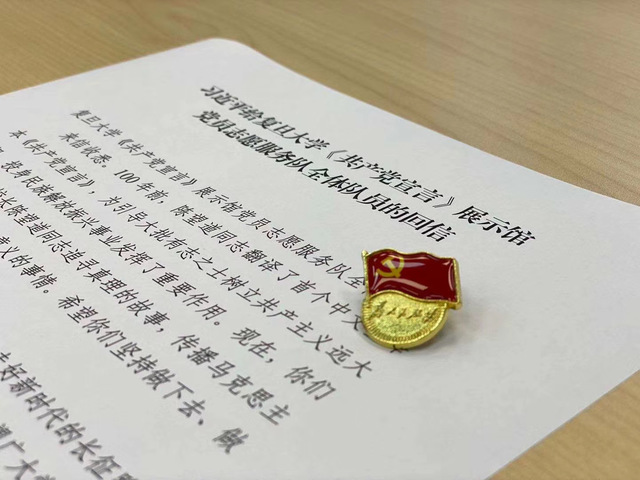 习近平给复旦大学《共产党宣言》展示馆
党员志愿服务队全体队员的回信
复旦大学《共产党宣言》展示馆党员志愿服务队全
来信收悉。100年前，陈望道同志翻译了首个中文
本《共产党宣言》，为引导大批有志之士树立共产主义远大
投身民族解放振兴事业发挥了重要作用。现在，你们
陈望道同志追寻真理的故事，传播马克思主
义的事情。希望你们坚持做下去、做
好新时代的长征路
广大